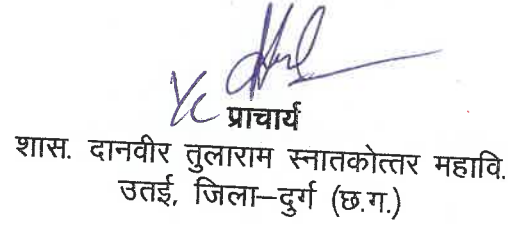 प्राचार्य
शास. दानवीर तुलाराम स्नातकोत्तर महावि.
उतई, जिला–दुर्ग (छ.ग.)